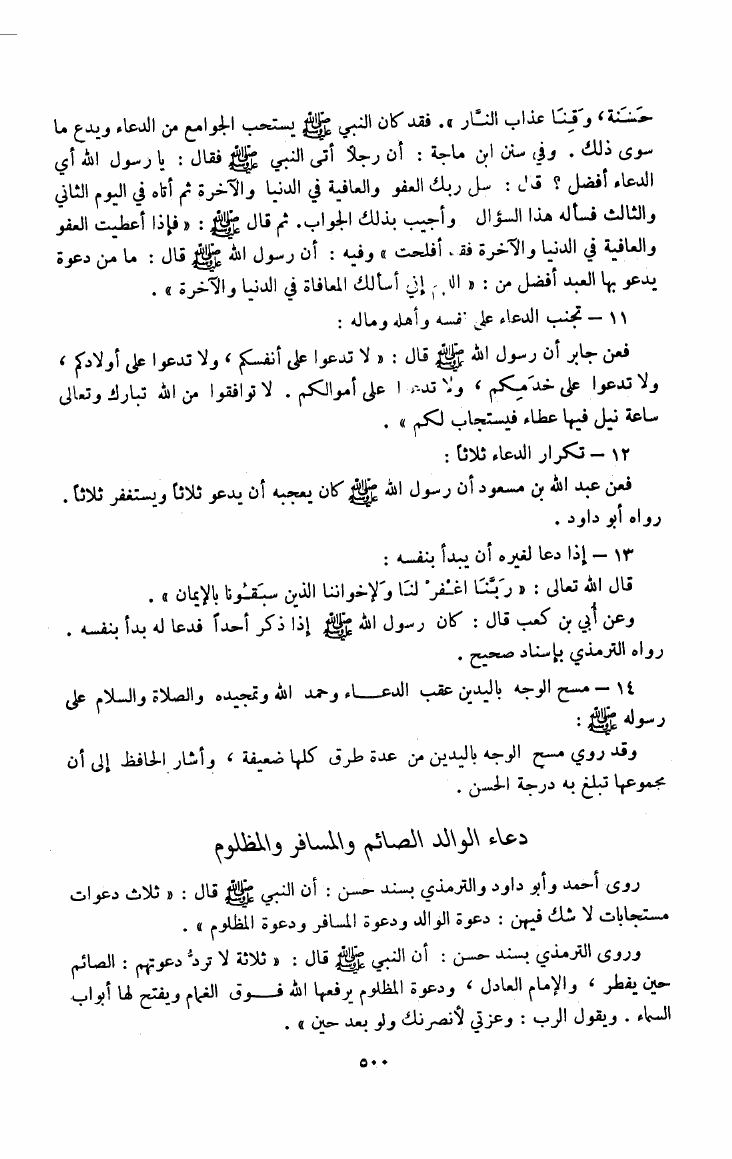 حَسَنة، وَقِنَا عذاب النَّار ». فقد كان النبي ﷺ يستحب الجوامع من الدعاء ويدع ما
سوى ذلك . وفي سنن ابن ماجة : أن رجلاً أتى النبي ﷺ فقال : يا رسول الله أي
الدعاء أفضل ؟ قال : سل ربك العفو والعافية في الدنيا والآخرة ثم أتاه في اليوم الثاني
والثالث فسأله هذا السؤال وأجيب بذلك الجواب. ثم قال ﷺ : « فإذا أعطيت العفو
والعافية في الدنيا والآخرة فقد أفلحت » وفيه : أن رسول الله ﷺ قال : ما من دعوة
يدعو بها العبد أفضل من : « اللهم إني أسألك المعافاة في الدنيا والآخرة » .
١١ – تجنب الدعاء على نفسه وأهله وماله :
فعن جابر أن رسول الله ﷺ قال : « لا تدعوا على أنفسكم ، ولا تدعوا على أولادكم ،
ولا تدعوا على خدَمِكم ، ولا تدعوا على أموالكم . لا توافقوا من الله تبارك وتعالى
ساعة نيل فيها عطاء فيستجاب لكم » .
١٢ – تكرار الدعاء ثلاثاً :
فعن عبد الله بن مسعود أن رسول الله ﷺ كان يعجبه أن يدعو ثلاثاً ويستغفر ثلاثاً .
رواه أبو داود .
١٣ – إذا دعا لغيره أن يبدأ بنفسه :
قال الله تعالى : « رَبَّنَا اغْفرْ لنَا وَلإخواننا الذين سبَقُونا بالإيمان » .
وعن أُبي بن كعب قال : كان رسول الله ﷺ إذا ذكر أحداً فدعا له بدأ بنفسه .
رواه الترمذي بإسناد صحيح .
١٤ – مسح الوجه باليدين عقب الدعاء وحمد الله وتمجيده والصلاة والسلام على
رسوله ﷺ :
وقد روي مسح الوجه باليدين من عدة طرق كلها ضعيفة ، وأشار الحافظ إلى أن
مجموعها تبلغ به درجة الحسن .
دعاء الوالد الصائم والمسافر والمظلوم
روى أحمد وأبو داود والترمذي بسند حسن : أن النبي ﷺ قال : « ثلاث دعوات
مستجابات لا شك فيهن : دعوة الوالد ودعوة المسافر ودعوة المظلوم » .
وروى الترمذي بسند حسن : أن النبي ﷺ قال : « ثلاثة لا تردُّ دعوتهم : الصائم
حين يفطر ، والإمام العادل ، ودعوة المظلوم يرفعها الله فوق الغمام ويفتح لها أبواب
السماء . ويقول الرب : وعزتي لأنصرنك ولو بعد حين » .
٥٠٠